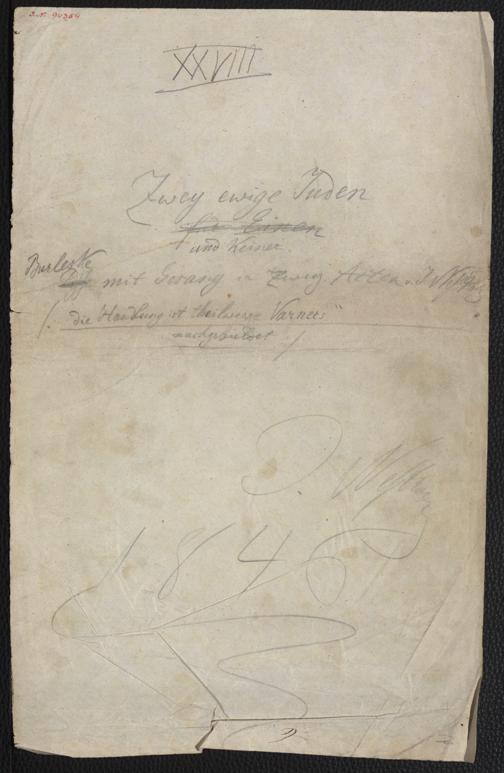 J.N. 94364
XXVIII
Zwey ewige Juden
für Einen
und Keiner.
Burleske
mit Gesang in Zwey Acten v. J. Nestroy
(: die Handlung ist theilweise Varners
nachgebildet :)
J. Nestroy
1846